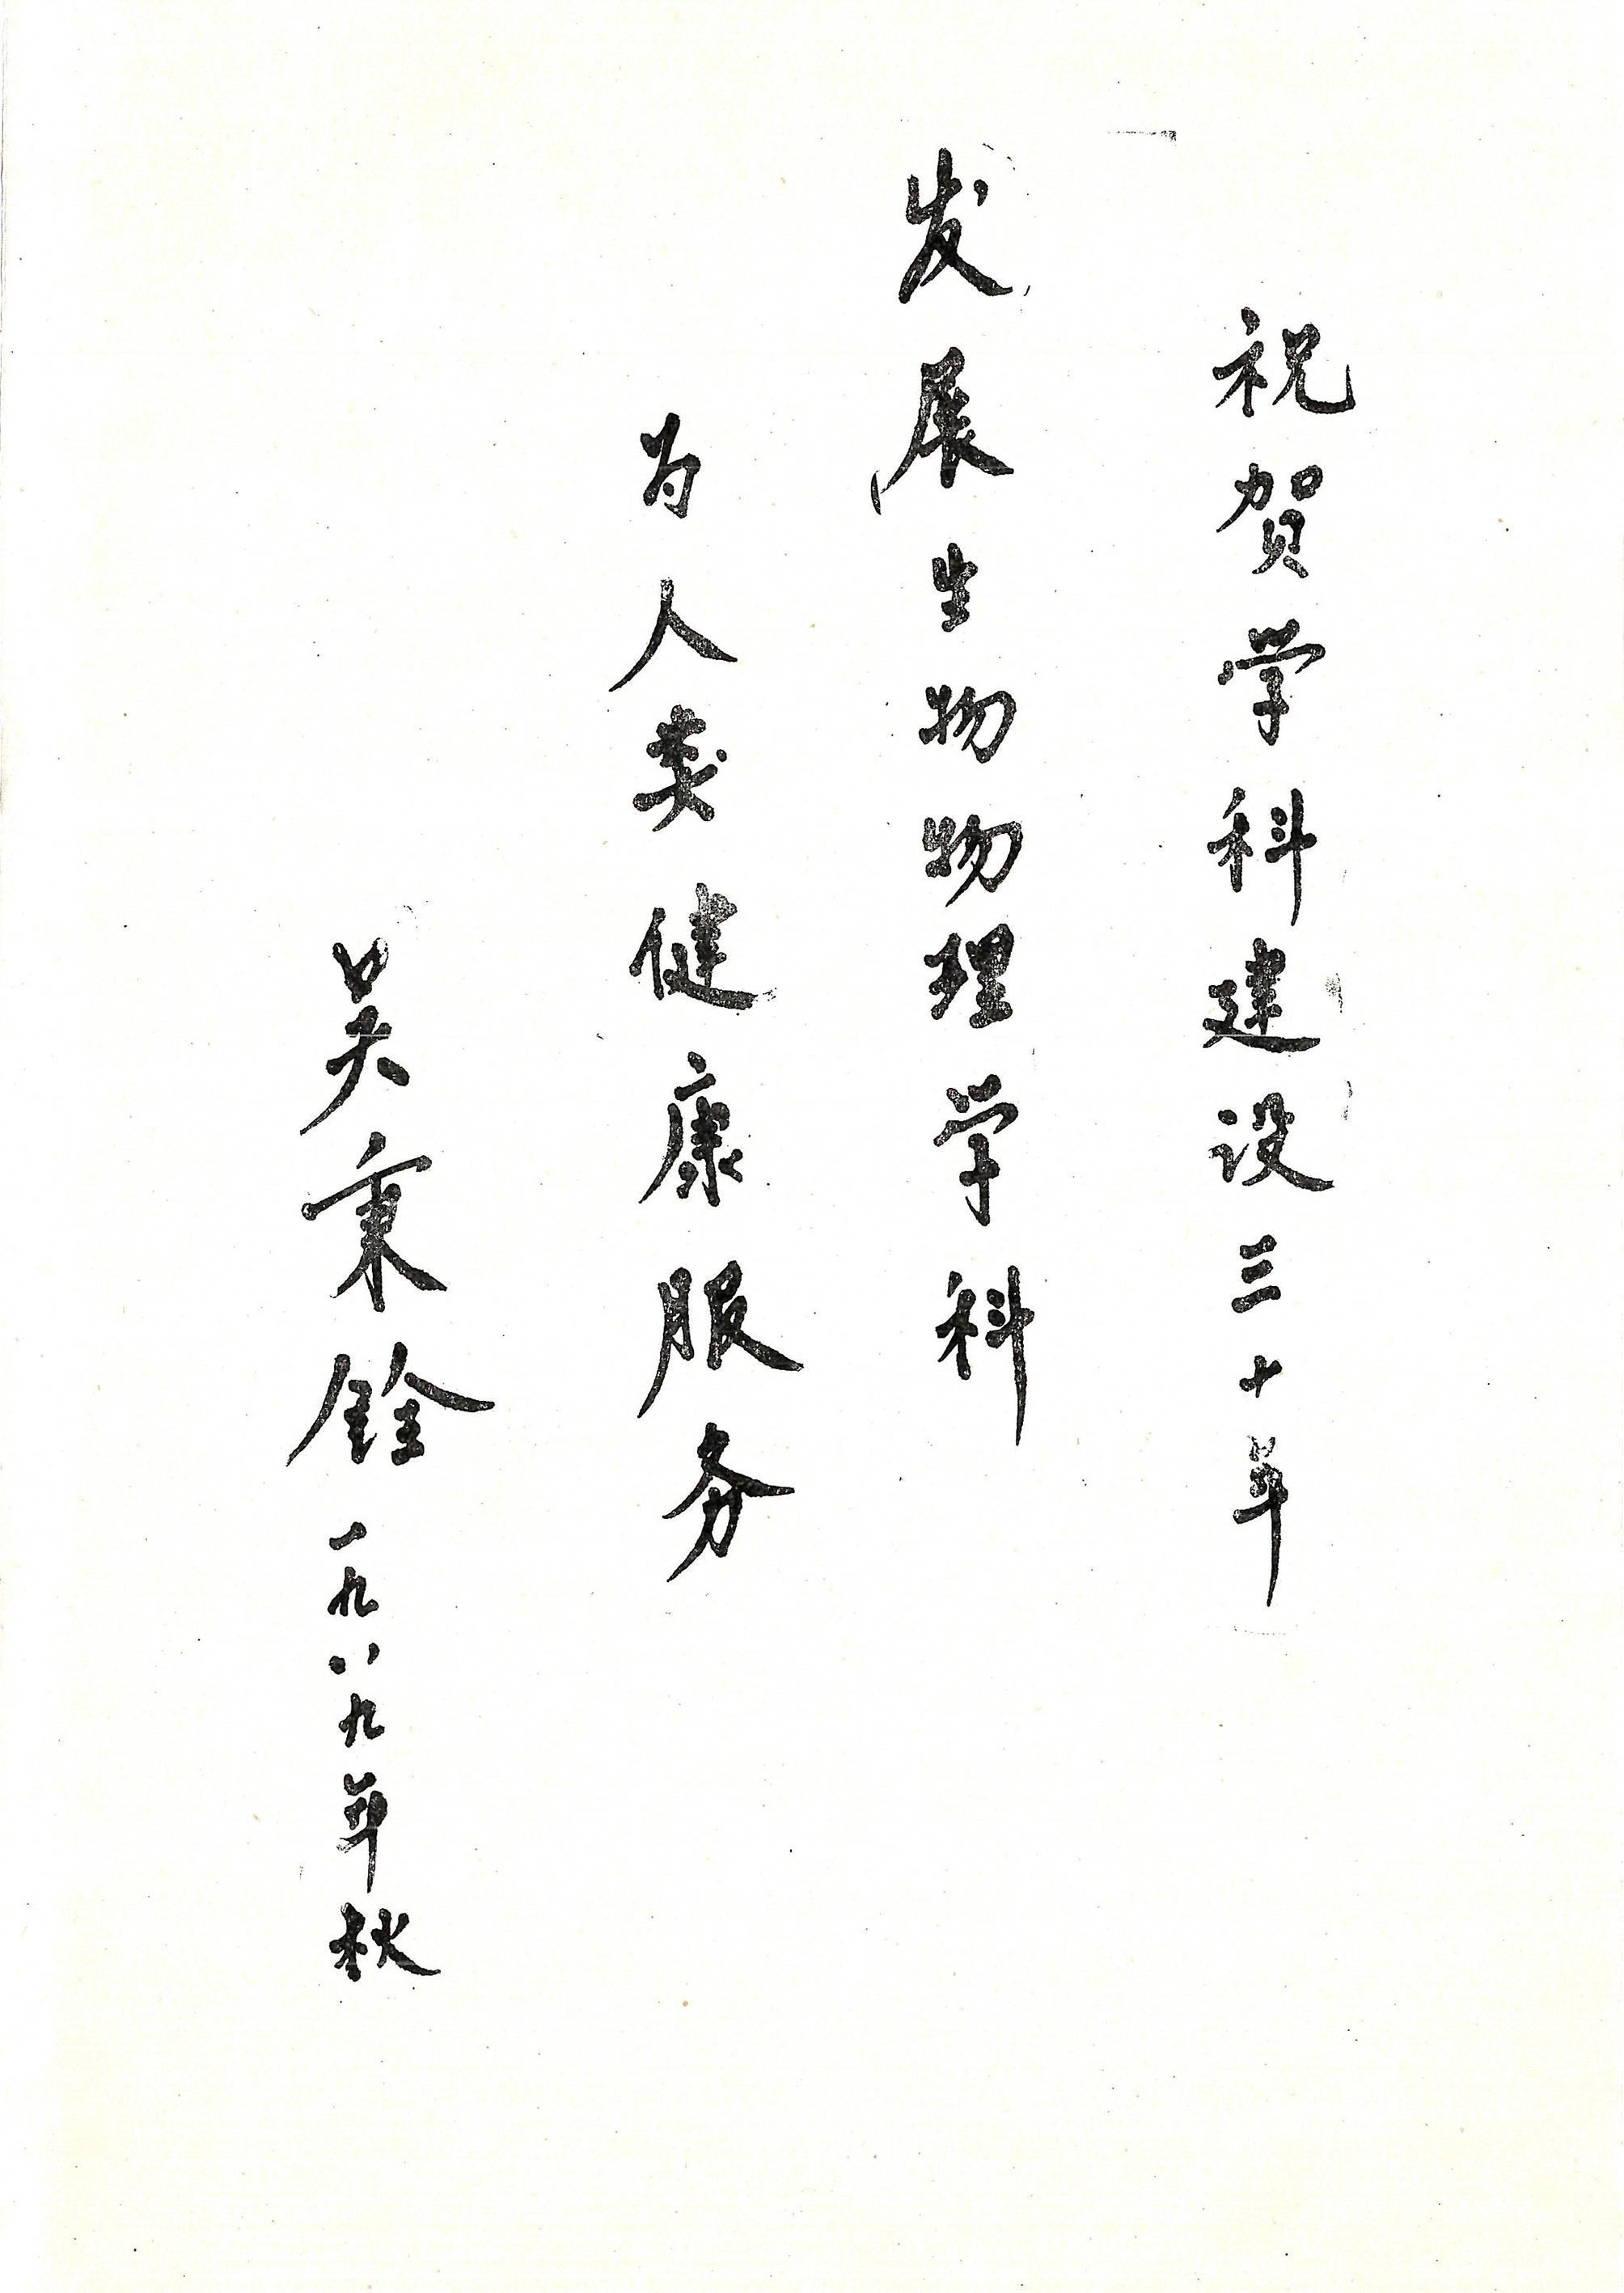 祝贺学科建设三十年
发展生物物理学科
为人类健康服务
吴秉铨 一九八九年秋